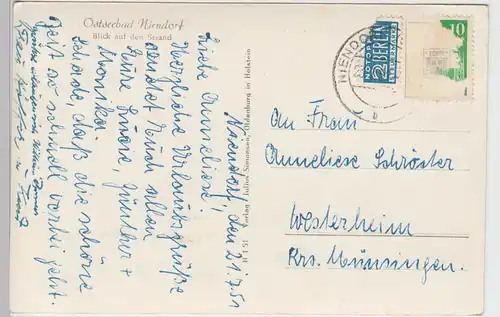 Ostseebad Niendorf
Blick auf den Strand
Niendorf, den 21.7.51
Liebe Anneliese!
Herzliche Urlaubsgrüße
sendet Euch allen
Eure Luise, Günther +
Monika.
Schade, daß die schöne
Zeit so schnell vorbei geht.
Verlag: Julius Simonsen, Oldenburg in Holstein
H 1 51
NIENDO
NOTOPFER
2 BERLIN
STEUERMARKE
10
b
An Frau
Anneliese Schröster
Westerheim
Krs. Münsingen.